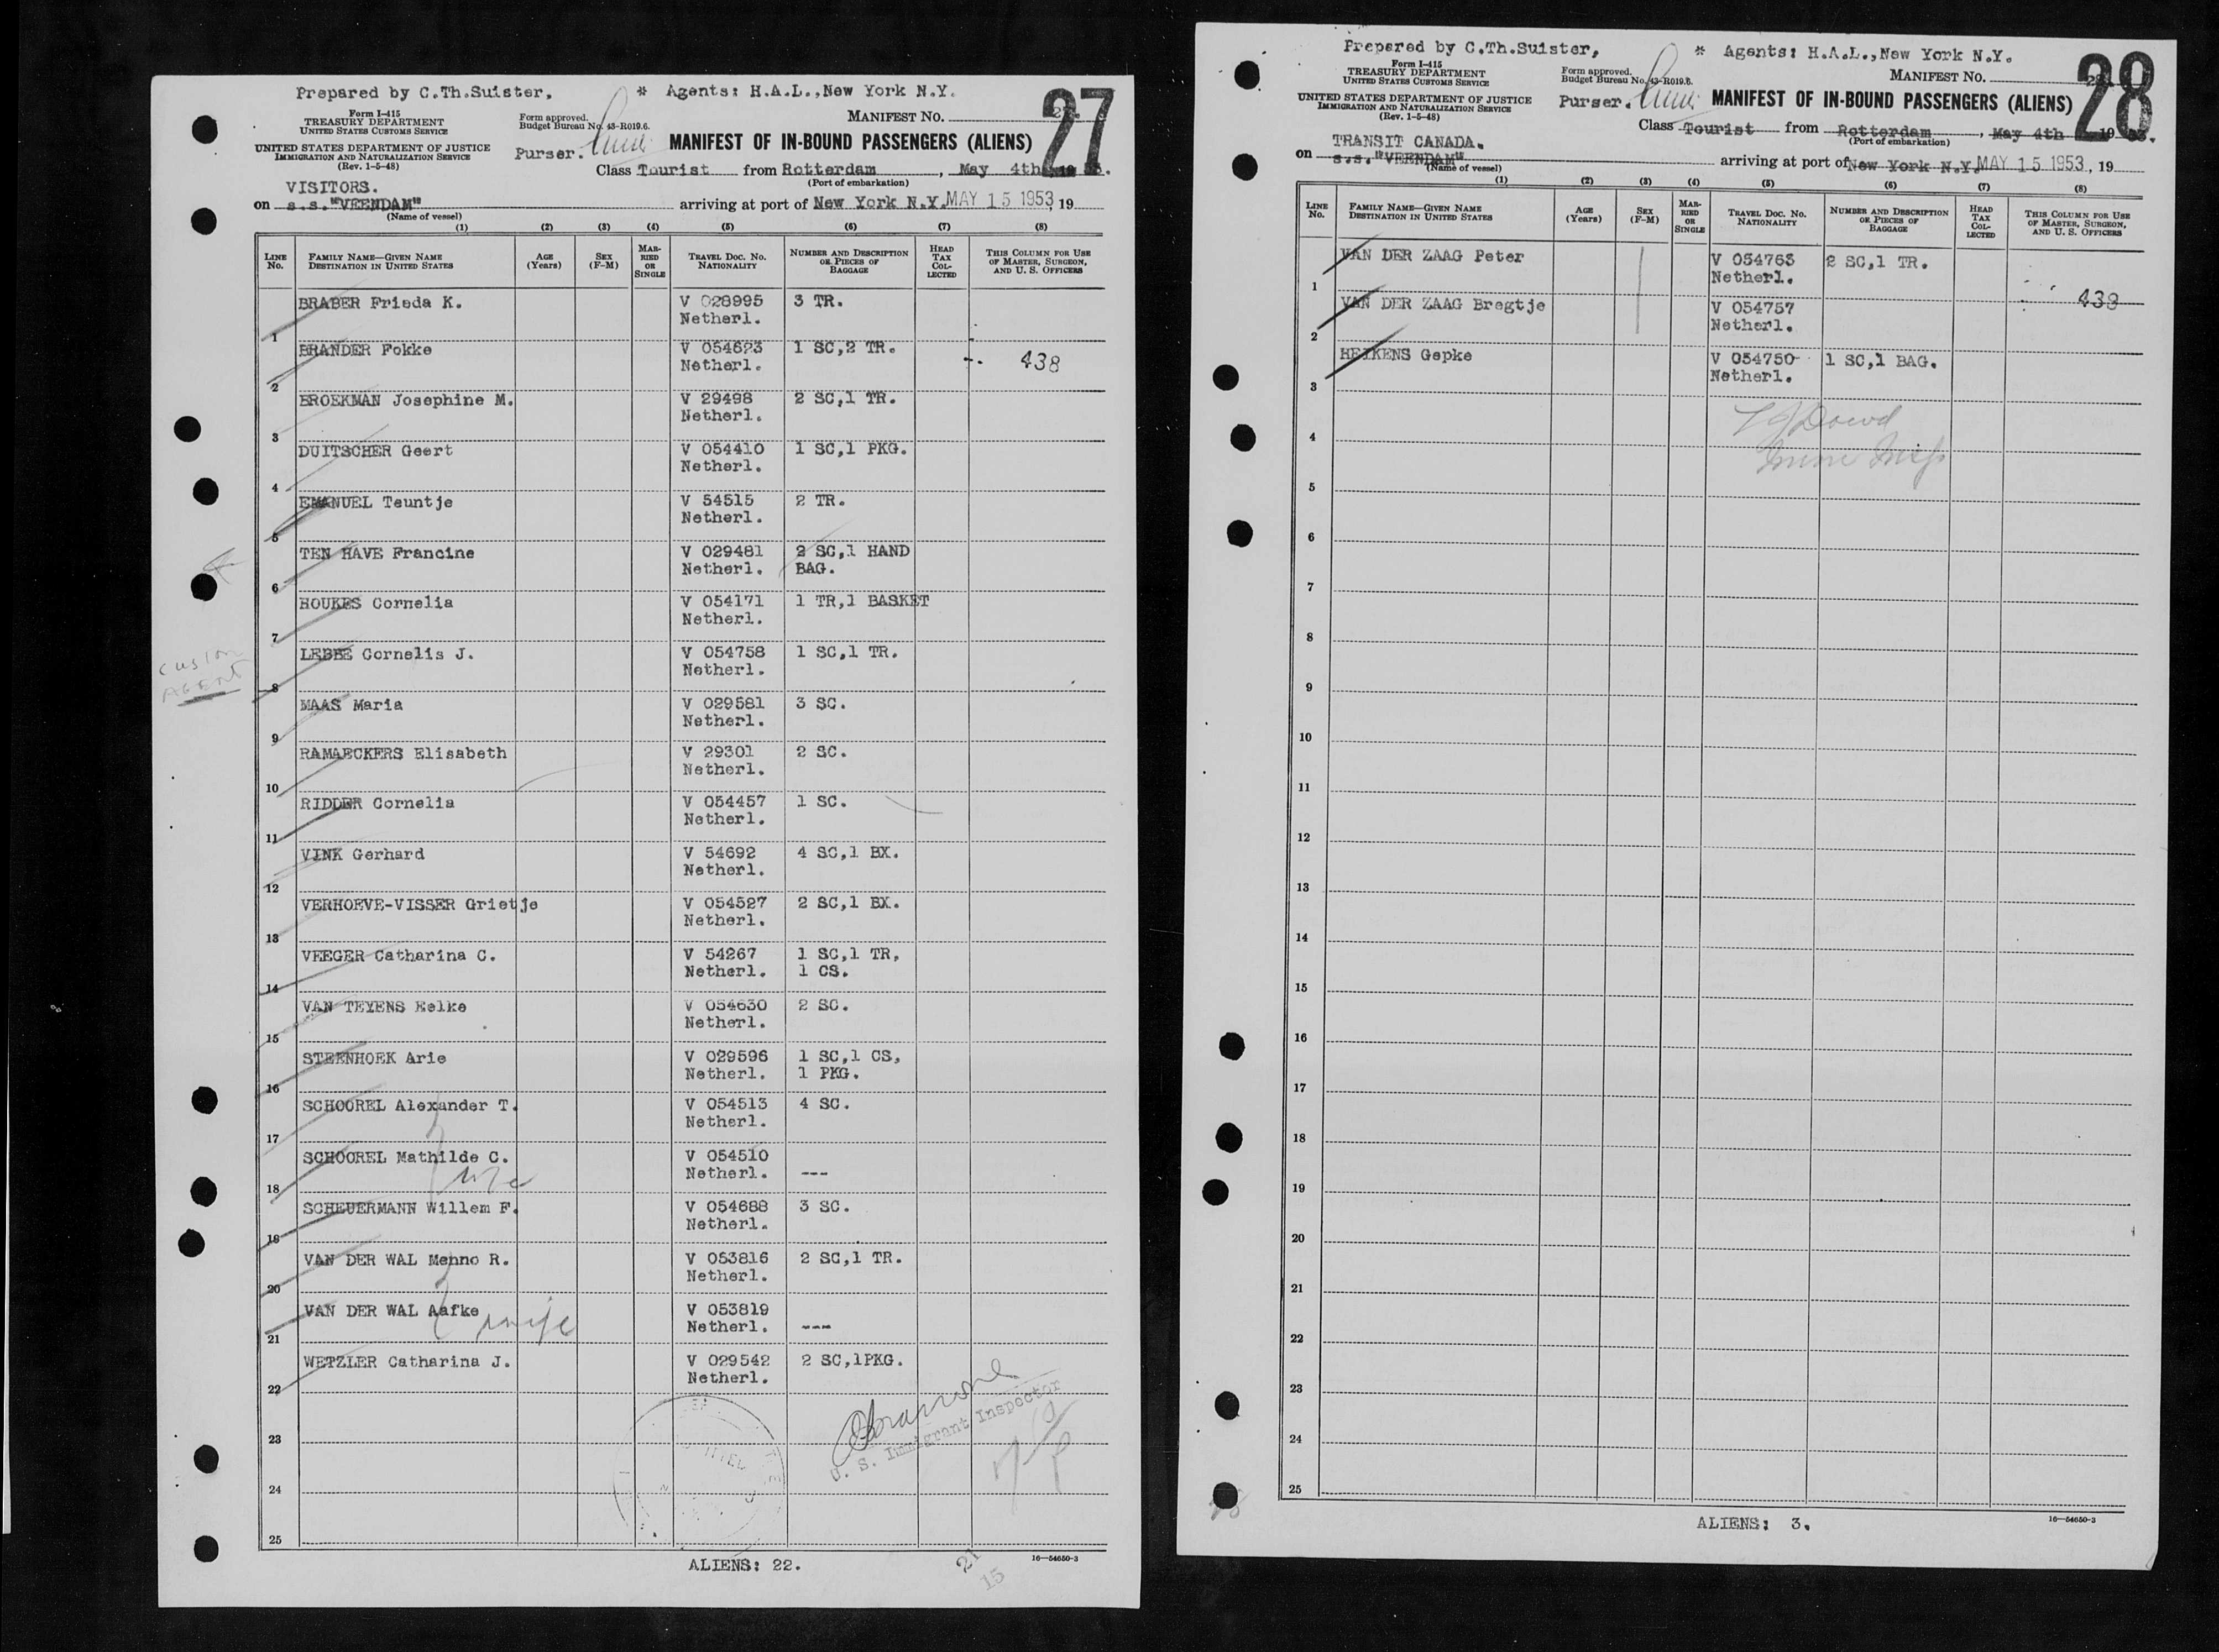 Prepared by C.Th.Suister, * Agents: H.A.L.,New York N.Y.
Form I-415
TREASURY DEPARTMENT
UNITED STATES CUSTOMS SERVICE
UNITED STATES DEPARTMENT OF JUSTICE
IMMIGRATION AND NATURALIZATION SERVICE
(Rev. 1-5-48)
Form approved.
Budget Bureau No. 43-R019.6.
Purser.
MANIFEST No.
27
MANIFEST OF IN-BOUND PASSENGERS (ALIENS)
Class Tourist from Rotterdam, May 4th
(Port of embarkation)
VISITORS.
on s.s."VEENDAM" arriving at port of New York N.Y. MAY 15 1953, 19
(Name of vessel)
(1) (2) (3) (4) (5) (6) (7) (8)
LINE No. FAMILY NAME—GIVEN NAME DESTINATION IN UNITED STATES AGE (Years) SEX (F-M) MARRIED OR SINGLE TRAVEL DOC. No. NATIONALITY NUMBER AND DESCRIPTION OF PIECES OF BAGGAGE HEAD TAX COLLECTED THIS COLUMN FOR USE OF MASTER, SURGEON, AND U. S. OFFICERS
1 BRABER Frieda K. V 028995 Netherl. 3 TR.
2 BRANDER Fokke V 054623 Netherl. 1 SC,2 TR. 438
3 BROEKMAN Josephine M. V 29498 Netherl. 2 SC,1 TR.
4 DUITSCHER Geert V 054410 Netherl. 1 SC,1 PKG.
5 EMANUEL Teuntje V 54515 Netherl. 2 TR.
6 TEN HAVE Francine V 029481 Netherl. 2 SC,1 HAND BAG.
7 HOUKES Cornelia V 054171 Netherl. 1 TR,1 BASKET
8 LEBBE Cornelis J. V 054758 Netherl. 1 SC,1 TR.
AGENT
9 MAAS Maria V 029581 Netherl. 3 SC.
10 RAMAECKERS Elisabeth V 29301 Netherl. 2 SC.
11 RIDDER Cornelia V 054457 Netherl. 1 SC.
12 VINK Gerhard V 54692 Netherl. 4 SC,1 BX.
13 VERHOEVE-VISSER Grietje V 054527 Netherl. 2 SC,1 BX.
14 VEEGER Catharina C. V 54267 Netherl. 1 SC,1 TR, 1 CS.
15 VAN TEYENS Eelke V 054630 Netherl. 2 SC.
16 STEENHOEK Arie V 029596 Netherl. 1 SC,1 CS, 1 PKG.
17 SCHOOREL Alexander T. V 054513 Netherl. 4 SC.
18 SCHOOREL Mathilde C. V 054510 Netherl. ---
19 SCHEUERMANN Willem F. V 054688 Netherl. 3 SC.
20 VAN DER WAL Menno R. V 053816 Netherl. 2 SC,1 TR.
21 VAN DER WAL Aafke wife V 053819 Netherl. ---
22 WETZLER Catharina J. V 029542 Netherl. 2 SC,1PKG.
23
U. S. Immigrant Inspector
24
25
ALIENS: 22.
21
15
16—54650-3
Prepared by C.Th.Suister, * Agents: H.A.L.,New York N.Y.
Form I-415
TREASURY DEPARTMENT
UNITED STATES CUSTOMS SERVICE
UNITED STATES DEPARTMENT OF JUSTICE
IMMIGRATION AND NATURALIZATION SERVICE
(Rev. 1-5-48)
Form approved.
Budget Bureau No. 43-R019.6.
Purser.
MANIFEST No.
28
MANIFEST OF IN-BOUND PASSENGERS (ALIENS)
Class Tourist from Rotterdam, May 4th 19
(Port of embarkation)
TRANSIT CANADA.
on s.s."VEENDAM" arriving at port of New York N.Y. MAY 15 1953, 19
(Name of vessel)
(1) (2) (3) (4) (5) (6) (7) (8)
LINE No. FAMILY NAME—GIVEN NAME DESTINATION IN UNITED STATES AGE (Years) SEX (F-M) MARRIED OR SINGLE TRAVEL DOC. No. NATIONALITY NUMBER AND DESCRIPTION OF PIECES OF BAGGAGE HEAD TAX COLLECTED THIS COLUMN FOR USE OF MASTER, SURGEON, AND U. S. OFFICERS
1 VAN DER ZAAG Peter V 054763 Netherl. 2 SC,1 TR.
438
2 VAN DER ZAAG Bregtje V 054757 Netherl.
3 HEIKENS Gepke V 054750 Netherl. 1 SC,1 BAG.
4
5
6
7
8
9
10
11
12
13
14
15
16
17
18
19
20
21
22
23
24
25
ALIENS: 3.
16—54650-3